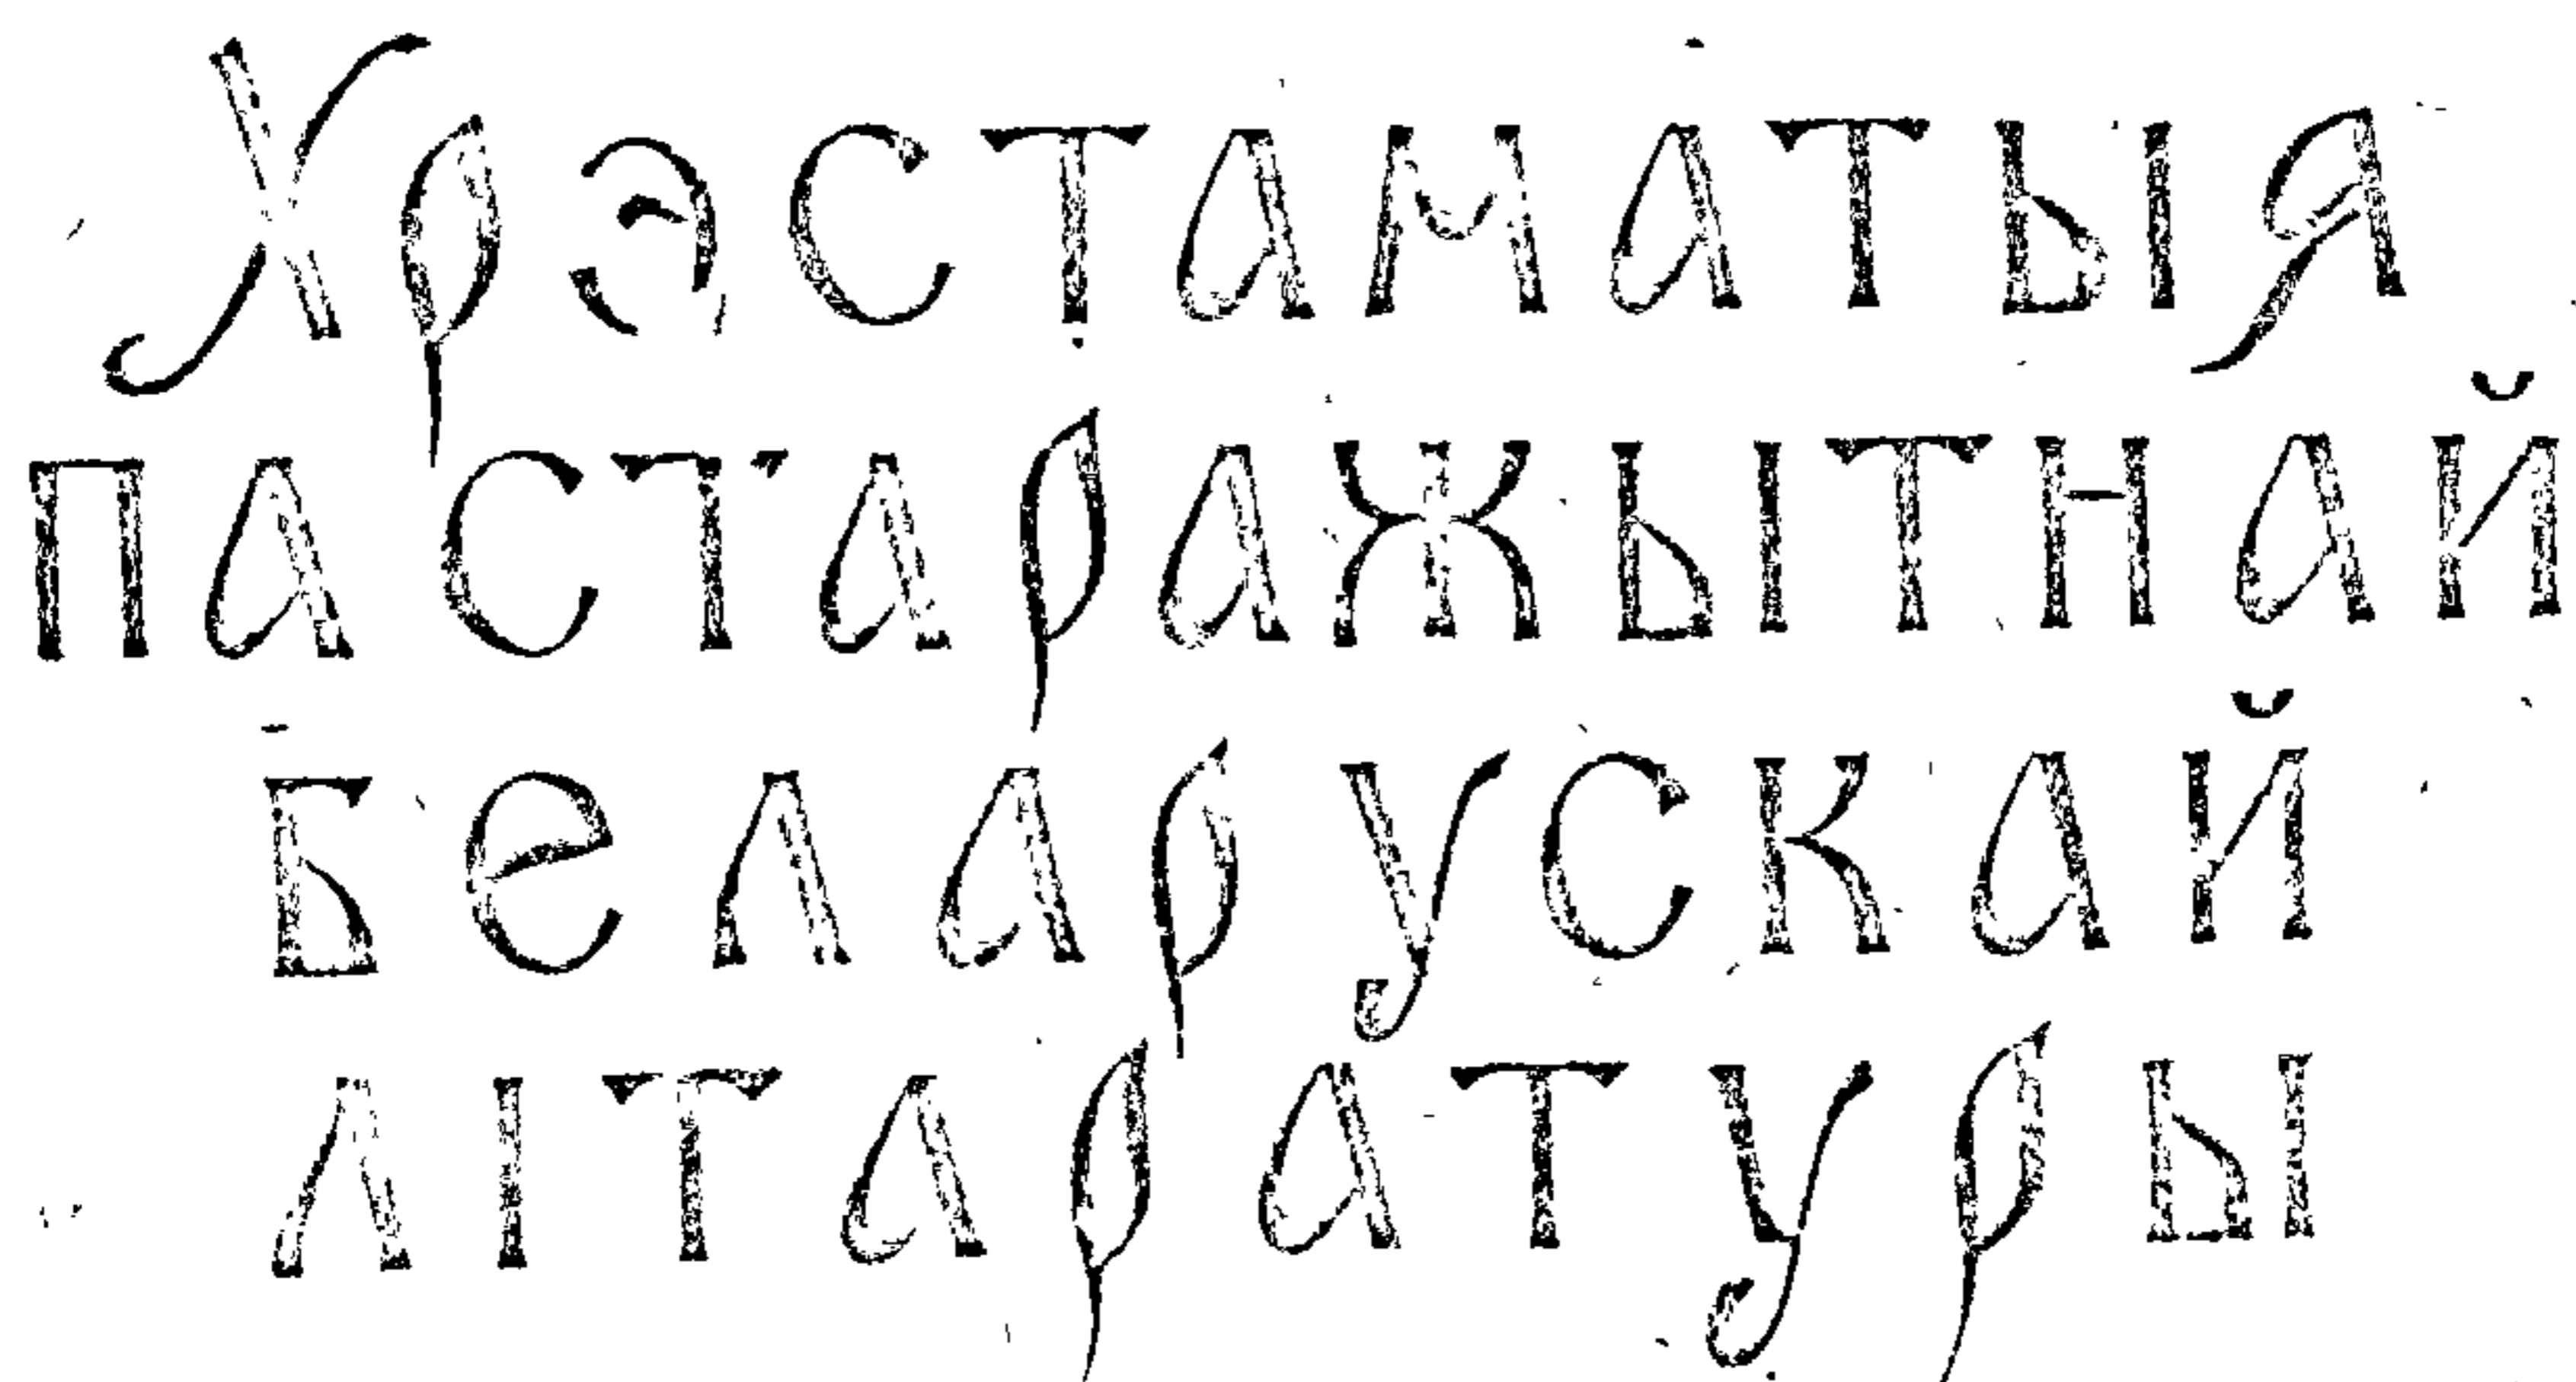 Хрэстаматыя
па старажытнай
беларускай
літаратуры